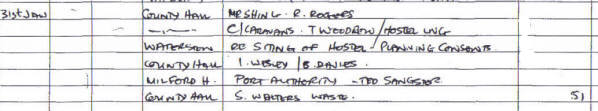 31st Jan COUNTY HALL MR SHING. R. ROGERS
—"— C/CARAVANS. T WOODROW/HOSTEL LNG
WATERSTON RE SITING OF HOSTEL - PLANNING CONSENTS.
COUNTY HALL I. WESLEY / B. DAVIES
MILFORD H. PORT AUTHORITY - TED SANGSTER
COUNTY HALL S. WALTERS WASTE. 51